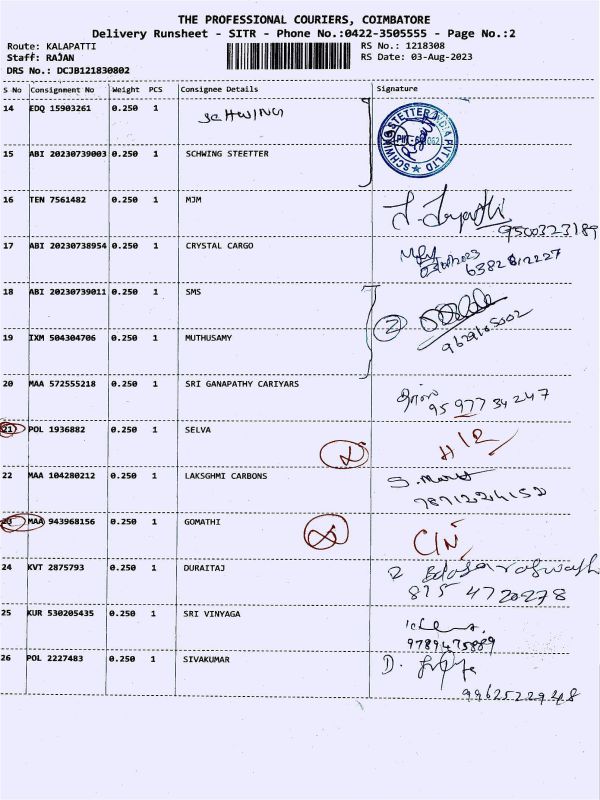 THE PROFESSIONAL COURIERS, COIMBATORE
Delivery Runsheet - SITR - Phone No.:0422-3505555 - Page No.:2
Route: KALAPATTI RS No.: 1218308
Staff: RAJAN RS Date: 03-Aug-2023
DRS No.: DCJB121830802
S No Consignment No Weight PCS Consignee Details Signature
14 EDQ 15903261 0.250 1 SCHWING
15 ABI 20230739003 0.250 1 SCHWING STEETTER
16 TEN 7561482 0.250 1 MJM
9500323189
17 ABI 20230738954 0.250 1 CRYSTAL CARGO
18 ABI 20230739011 0.250 1 SMS 2
19 IXM 504304706 0.250 1 MUTHUSAMY
20 MAA 572555218 0.250 1 SRI GANAPATHY CARIYARS
95 97734247
21 POL 1936882 0.250 1 SELVA
22 MAA 104280212 0.250 1 LAKSGHMI CARBONS
23 MAA 943968156 0.250 1 GOMATHI
24 KVT 2875793 0.250 1 DURAITAJ
875 4720278
25 KUR 530205435 0.250 1 SRI VINYAGA
9789475889
26 POL 2227483 0.250 1 SIVAKUMAR